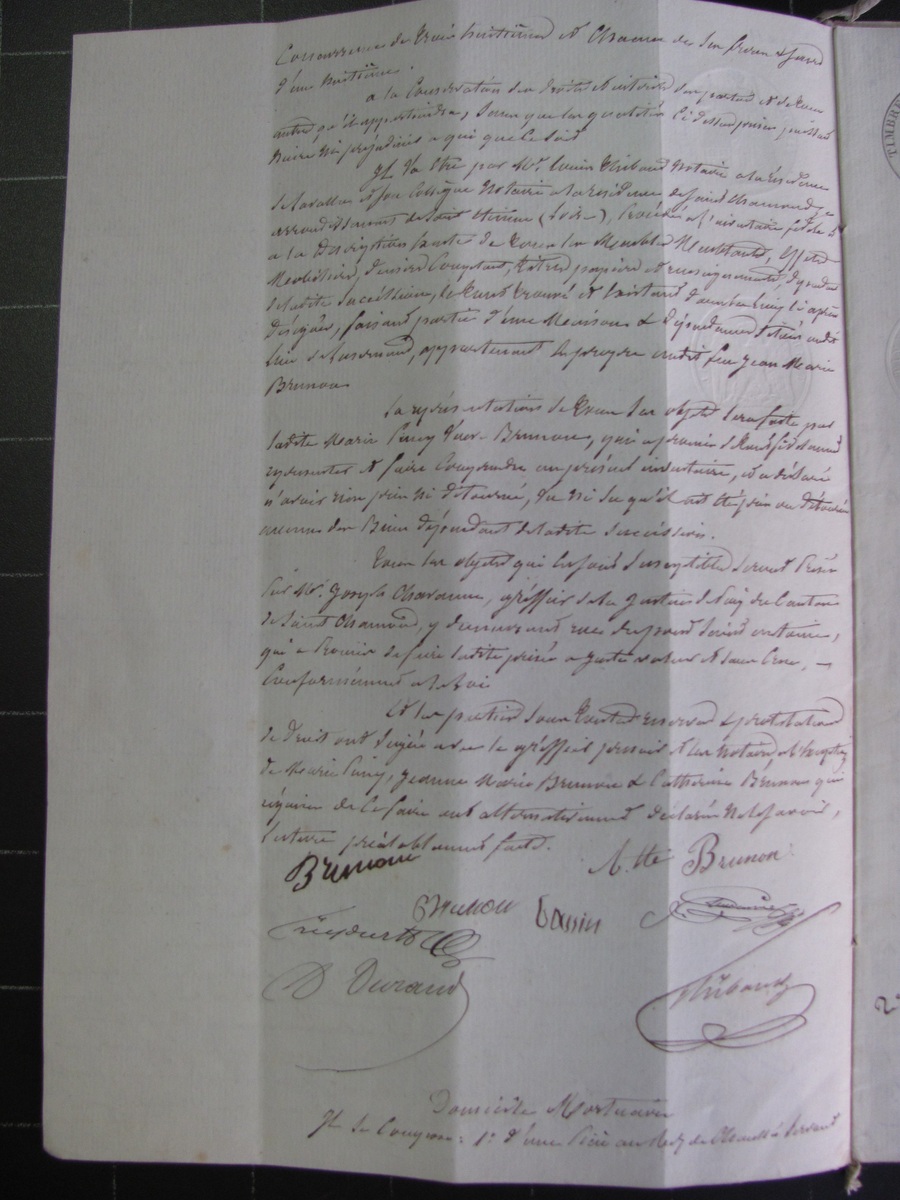 Concurrence de trois huitièmes et chacun des
d'un huitième.
à la Conservation des droits et intérêts des parties et de tous
autres qu'il appartiendra, sans que les qualités ci dessus prises puissent
nuire ni préjudicier à qui que ce soit
Il va être par Me Thibaud Notaire à la résidence
de et son Collègue Notaire à la résidence de Saint Chamond,
arrondissement de Saint Etienne (Loire), procédé à l'inventaire fidèle &
à la Description exacte de tous les Meubles Meublants, effets
Mobiliers, deniers Comptants, titres, papiers et renseignements, dépendant
de ladite succession, le tout trouvé et étant dans les lieux ci après
désignés, faisant partie d'une Maison & dépendances situés audit
lieu de appartenant en propre audit feu Jean Marie
Brunon
La représentation de tous les objets sera faite par
ladite Marie Pincy Veuve Brunon, qui a promis de fidèlement
représenter et faire comprendre au présent inventaire, et a déclaré
n'avoir rien pris ni détourné, vu ni su qu'il ait été pris ou détourné
aucuns des Biens dépendant de ladite succession.
Tous les objets qui en sont susceptibles seront prisés
par Me Joseph Chavanne, greffier de la Justice de Paix du Canton
de Saint Chamond, y demeurant rue
qui a promis de faire ladite prisée à juste valeur et sans Crue, —
Conformément à la Loi
Et les parties sous toutes réserves & protestations
de droit ont signé avec le greffier priseur et les Notaires, à l'exception
de Marie Pincy, Jeanne Marie Brunon & Catherine Brunon qui
requises de le faire ont alternativement déclaré ne le savoir,
lecture préalablement faite.
Brunon A.tte Brunon
Brunon bassin
D Durand Thibaud
Domicile Mortuaire
Il se compose: 1° d'une pièce au Rez de Chaussée servant